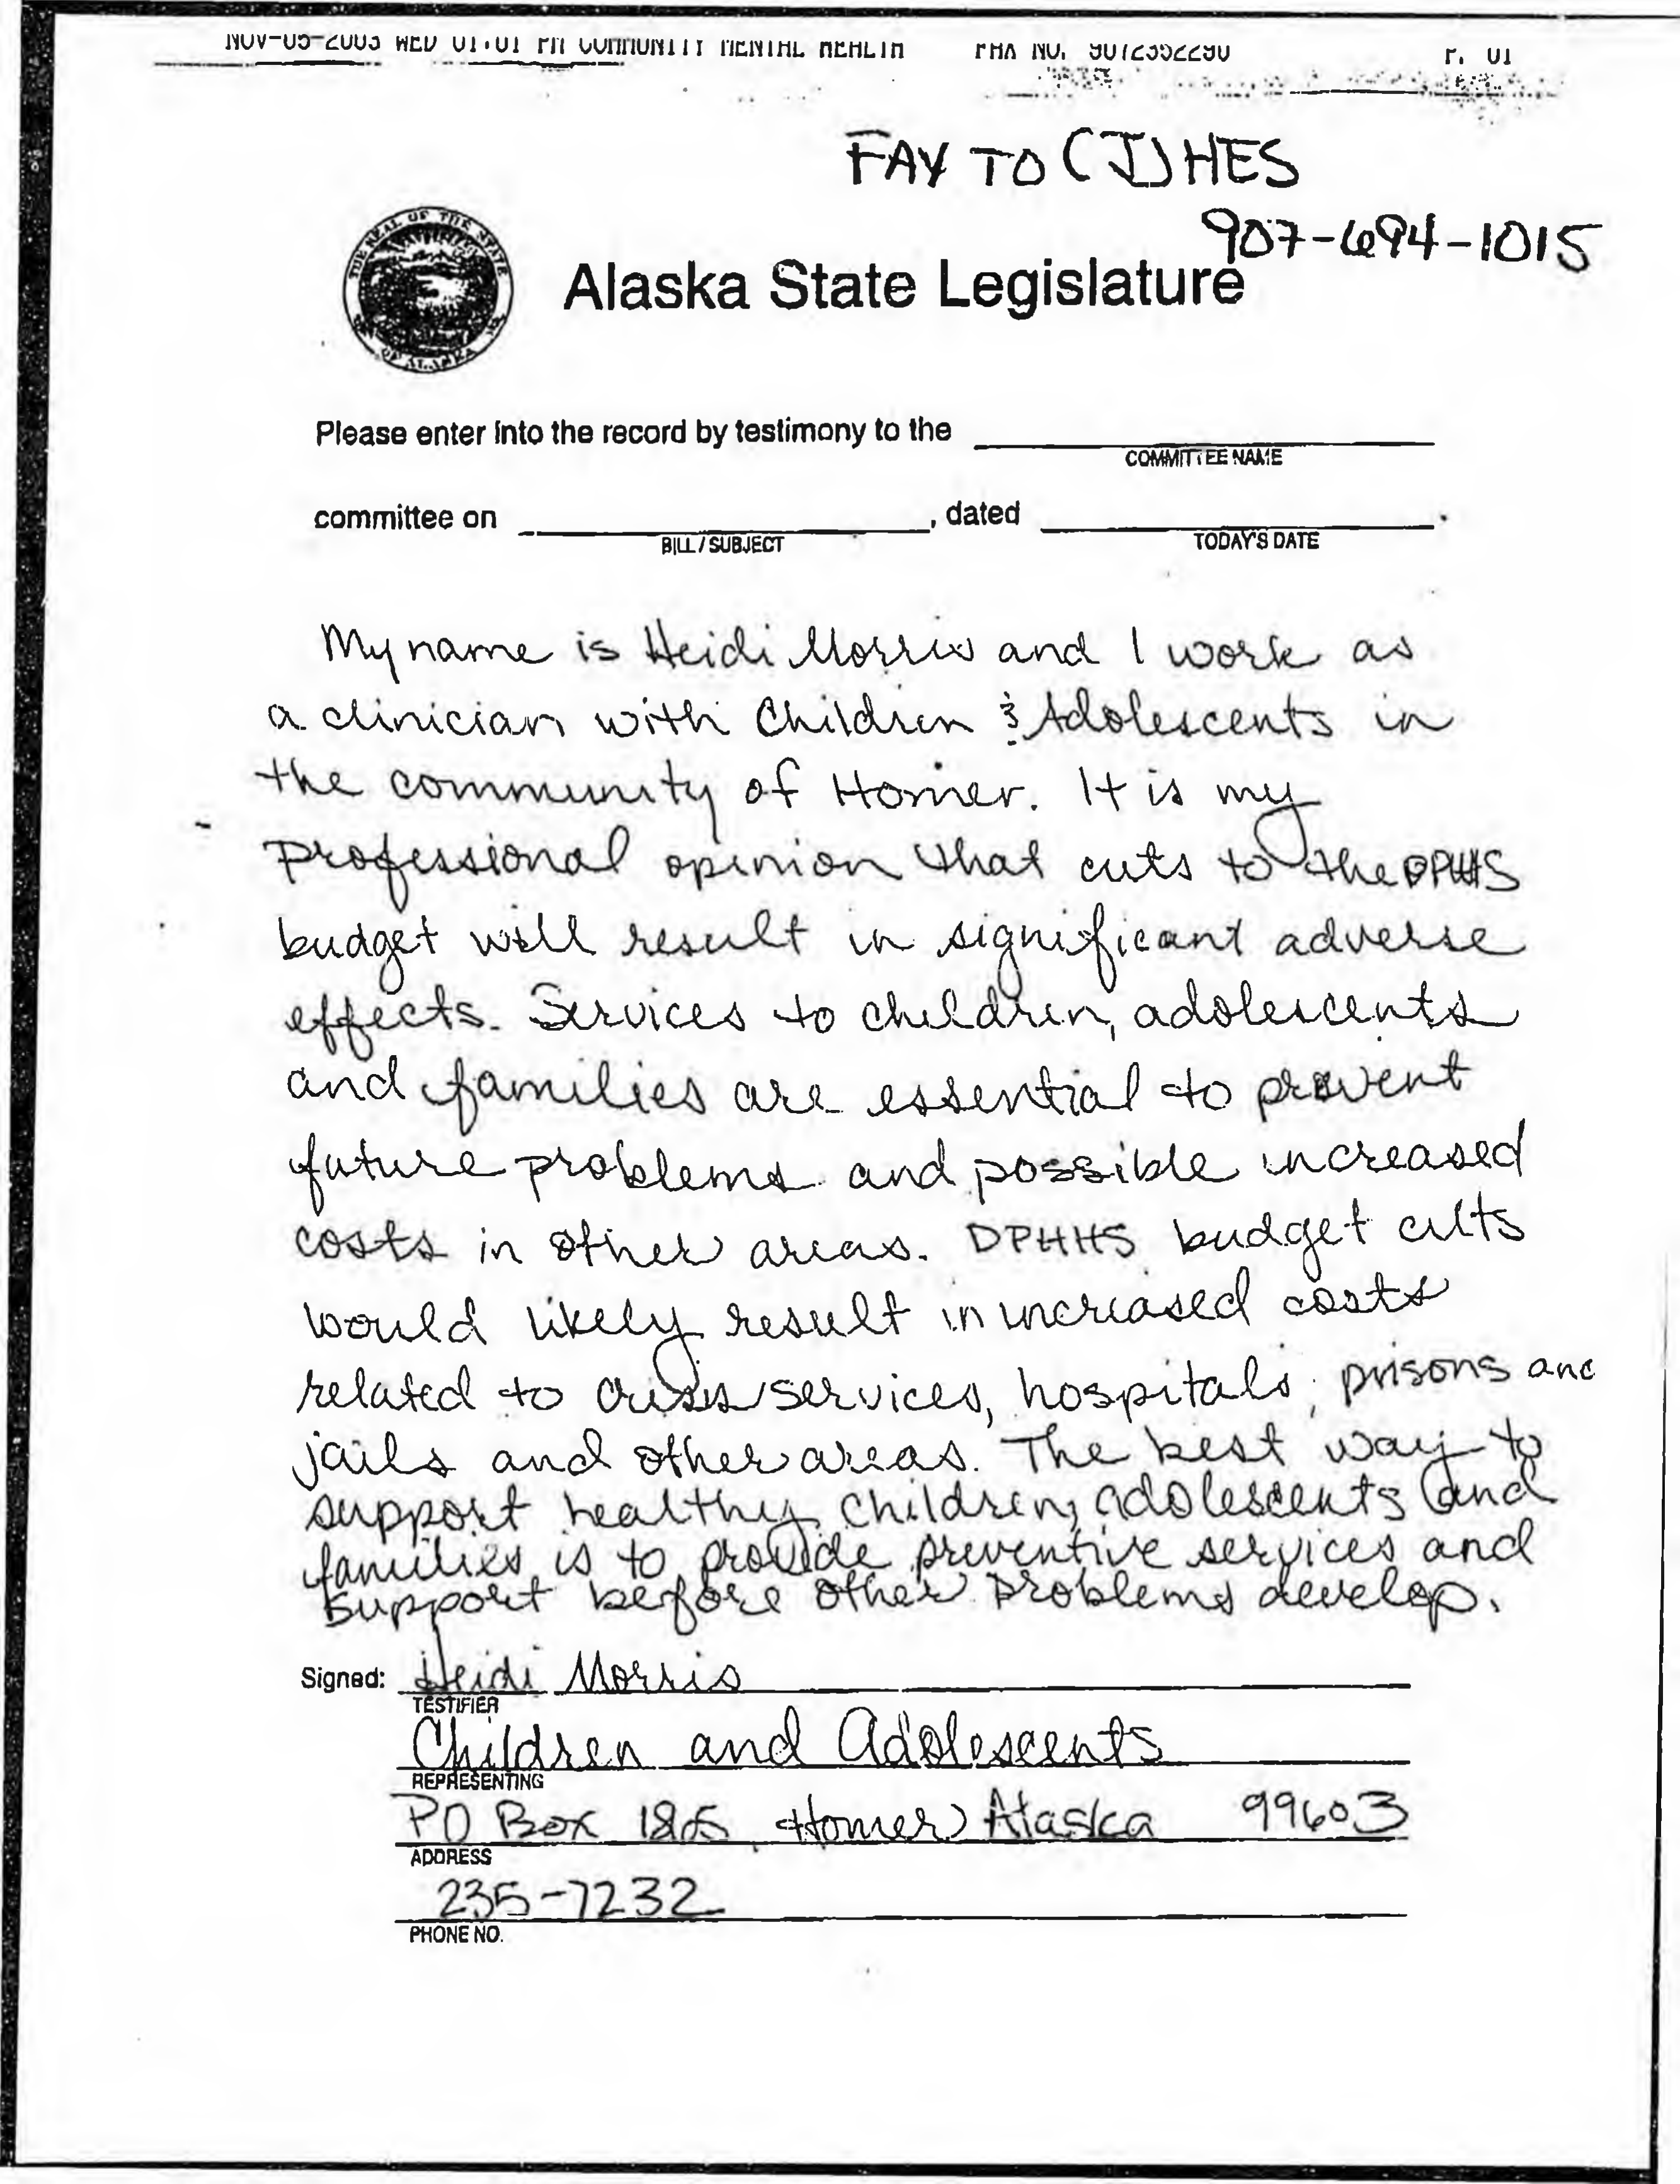 NOV-05-2003 WED 01:01 PM COMMUNITY MENTAL HEALTH FAX NO. 9072352290 P. 01
FAX TO (J) HES
907-694-1015
THE SEAL OF THE STATE OF ALASKA
Alaska State Legislature
Please enter into the record by testimony to the
COMMITTEE NAME
committee on , dated .
BILL / SUBJECT TODAY'S DATE
My name is Heidi Morris and I work as
a clinician with Children & Adolescents in
the community of Homer. It is my
professional opinion that cuts to the DPHHS
budget will result in significant adverse
effects. Services to children, adolescents
and families are essential to prevent
future problems and possible increased
costs in other areas. DPHHS budget cuts
would likely result in increased costs
related to crisis services, hospitals, prisons and
jails and other areas. The best way to
support healthy children, adolescents and
families is to provide preventive services and
support before other problems develop.
Signed: Heidi Morris
TESTIFIER
Children and Adolescents
REPRESENTING
PO Box Homer, Alaska 99603
ADDRESS
235-7232
PHONE NO.